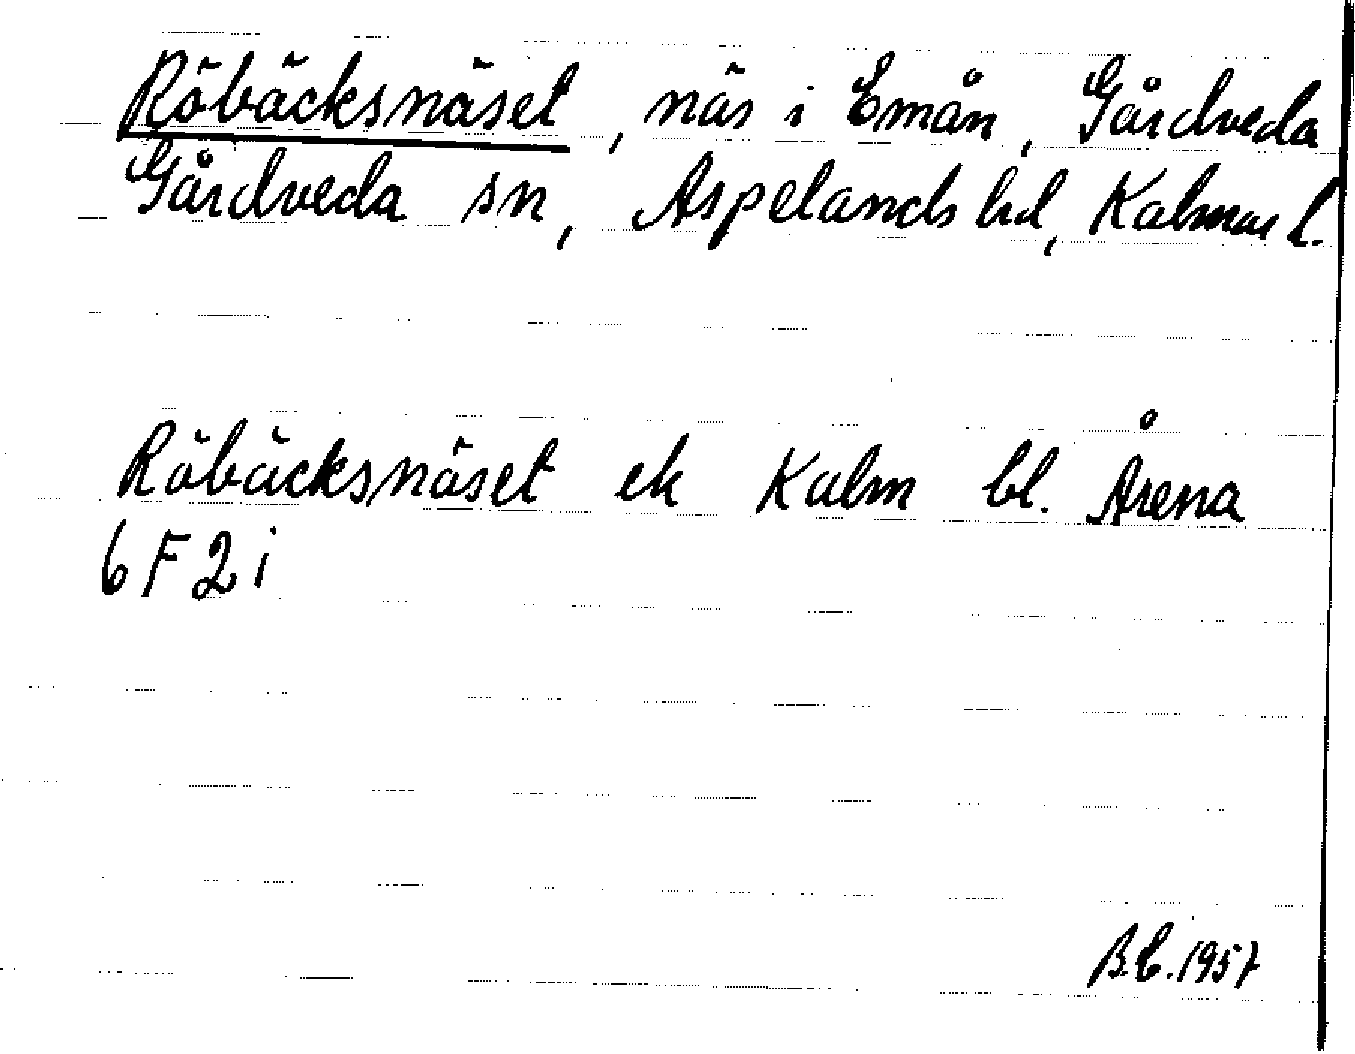 Röbäcksnäset, näs i Emån, Gårdveda
Gårdveda sn, Aspelands hd, Kalmar l.
Röbäcksnäset ek Kalm bl. Årena
6 F 2 i
B.E. 1957